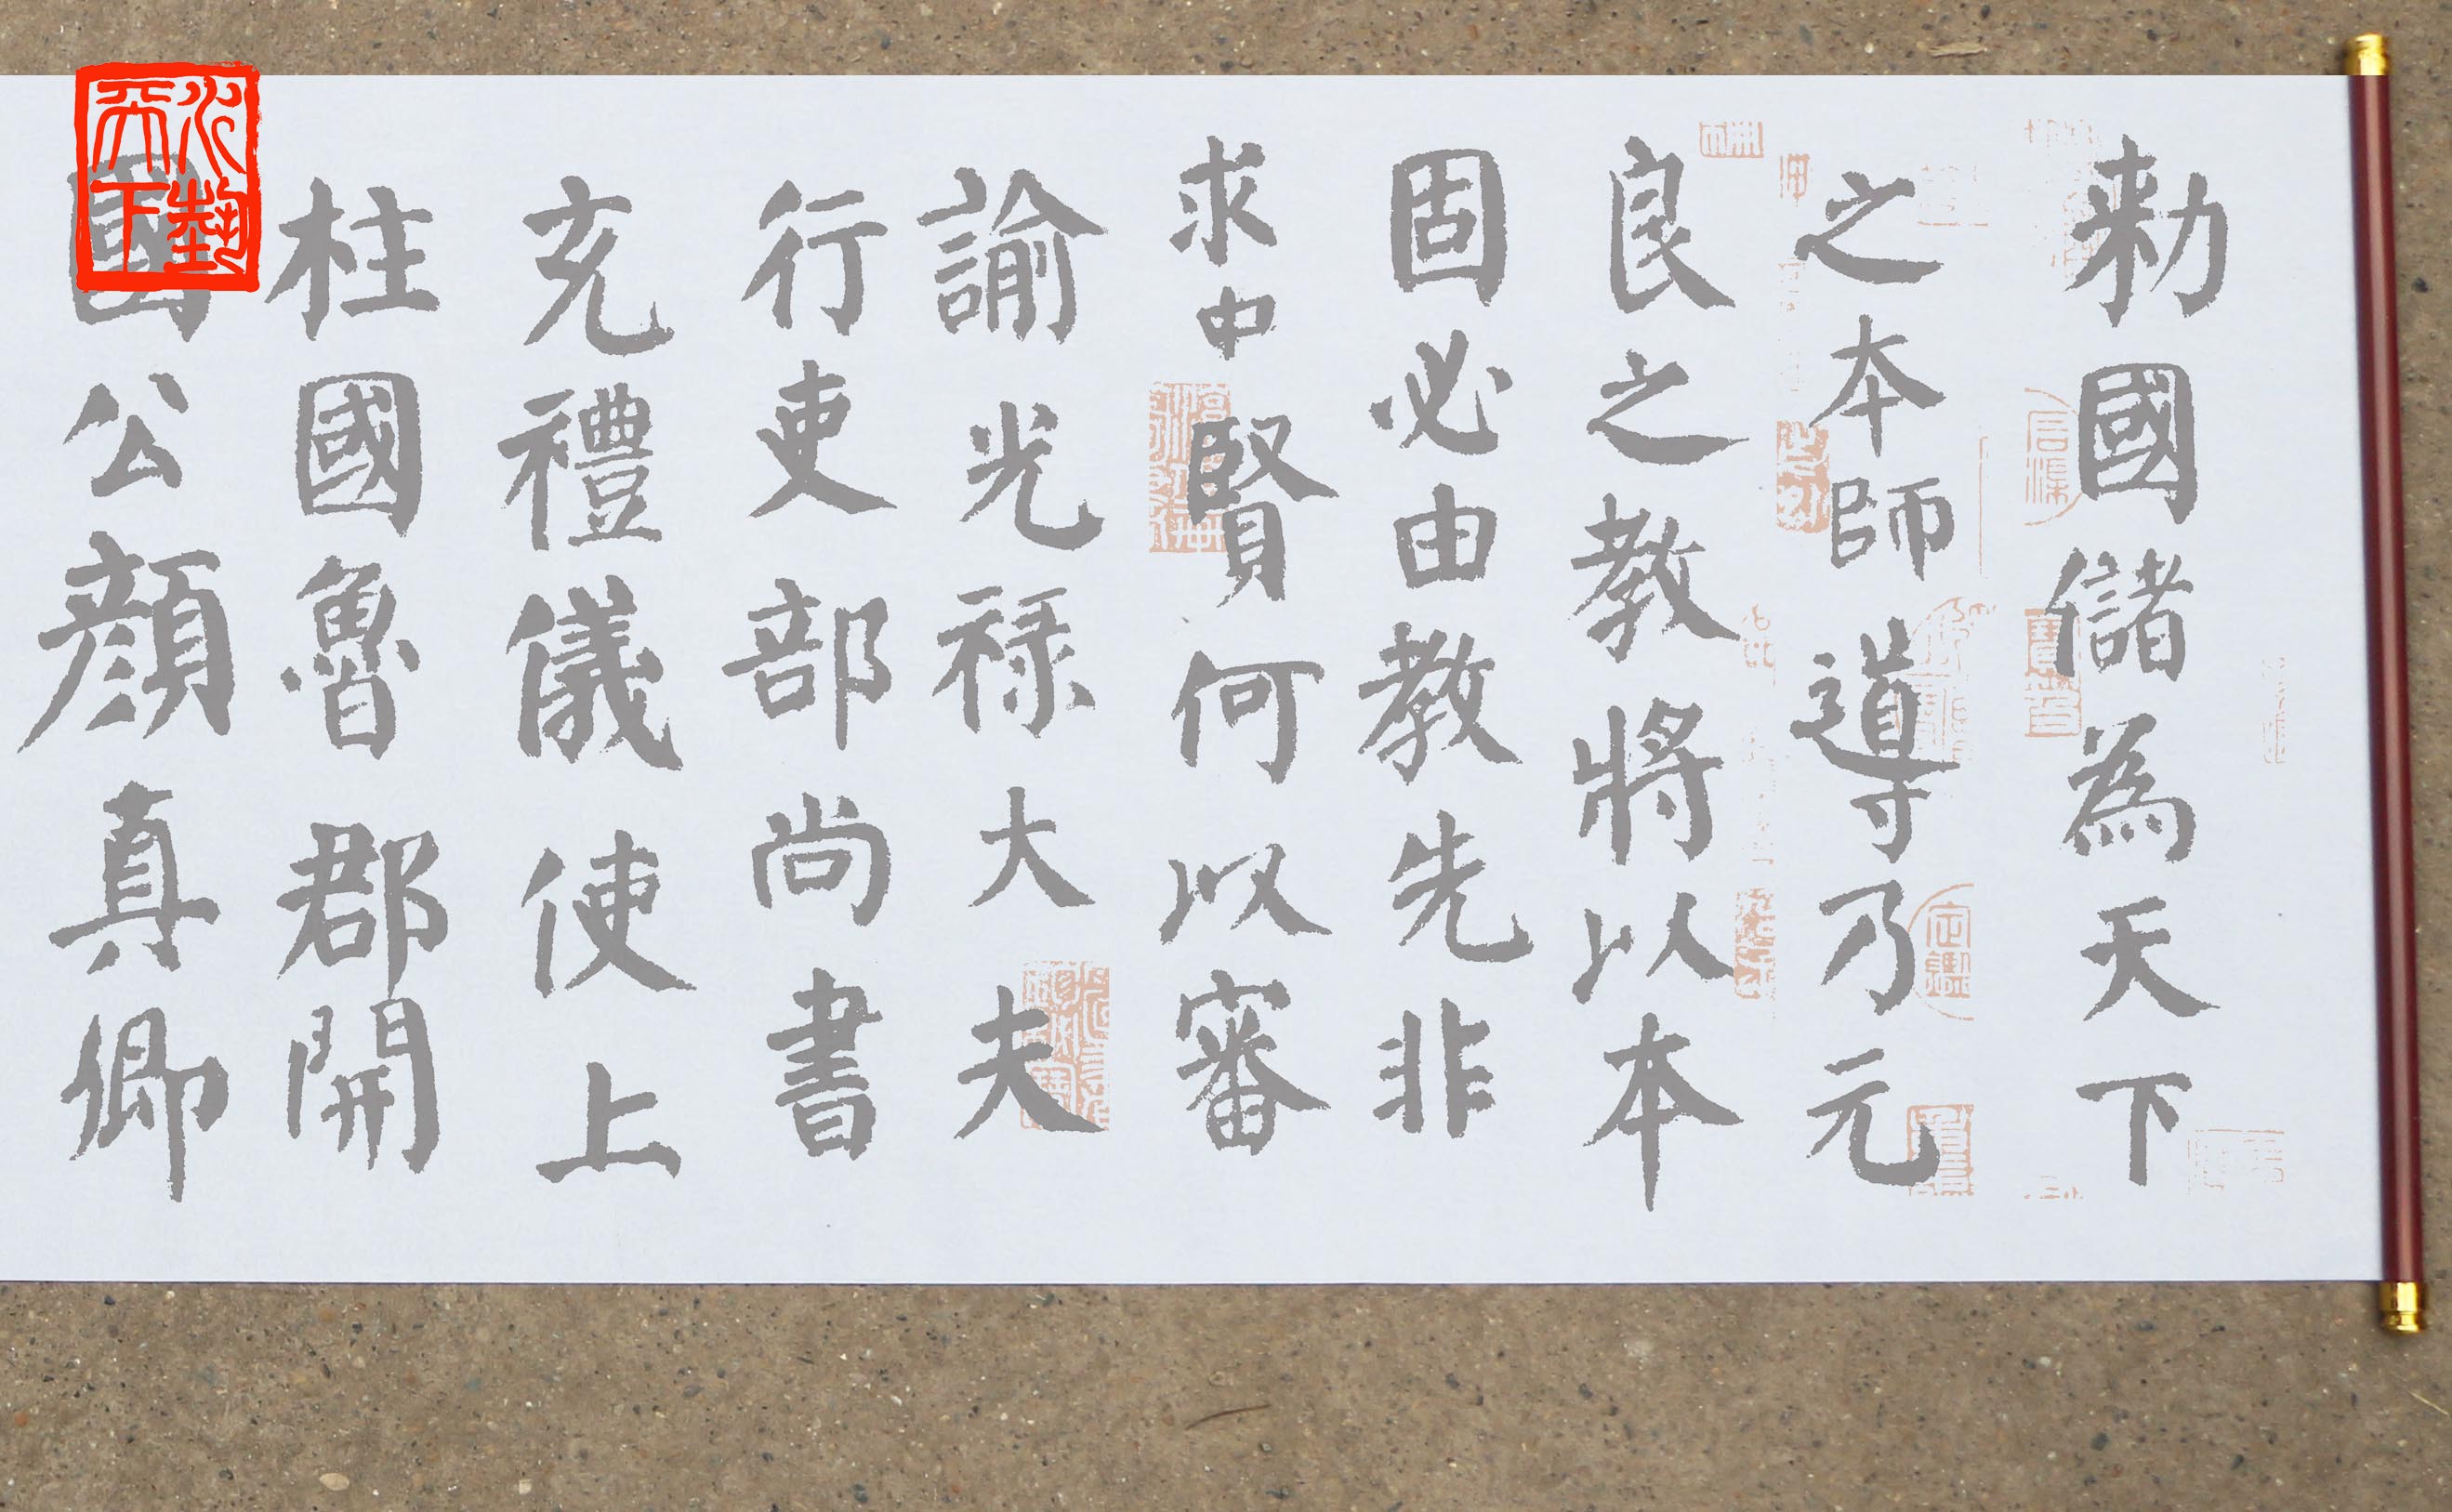 勅國儲為天下
之本師導乃元
良之教將以本
固必由教先非
求中賢何以審
諭光祿大夫
行吏部尚書
充禮儀使上
柱國魯郡開
國公顏真卿